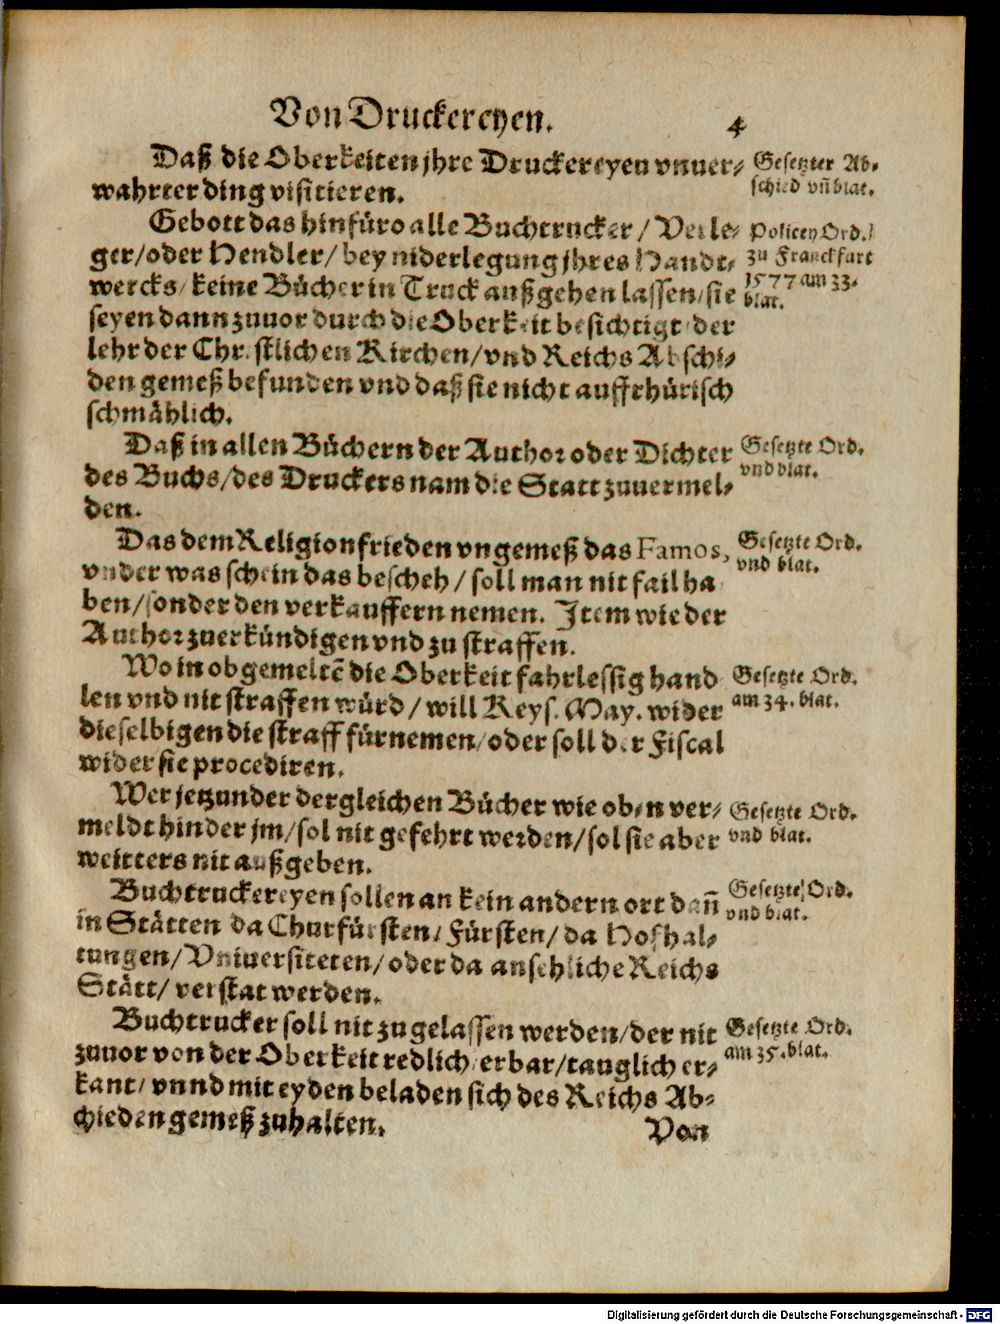 Von Druckereyen.
4
Daß die Oberkeiten jhre Druckereyen vnuer-
wahrter ding visitieren.
Gesetzter Ab-
schied vn̄ blat.
Gebott das hinfüro alle Buchtrucker / Verle-
ger/oder Hendler/ bey niderlegung jhres Handt-
wercks/ keine Bücher in Truck außgehen lassen/sie
seyen dann zuuor durch die Oberkeit besichtigt/ der
lehr der Christlichen Kirchen/vnd Reichs Abschi-
den gemeß befunden vnd daß sie nicht auffrhürisch
schmählich.
Policey Ord.
zu Franckfurt
1577 am 33.
blat.
Daß in allen Büchern der Author oder Dichter
des Buchs/des Druckers nam die Statt zuuermel-
den.
Gesetzte Ord.
vnd blat.
Das dem Religionfrieden vngemeß das Famos,
vnder was schein das bescheh / soll man nit fail ha
ben/sonder den verkauffern nemen. Item wie der
Author zuerkündigen vnd zu straffen.
Gesetzte Ord.
vnd blat.
Wo in obgemeltē die Oberkeit fahrlessig hand
len vnd nit straffen würd / will Keys. May. wider
dieselbigen die straff fürnemen/oder soll der Fiscal
wider sie procediren.
Gesetzte Ord.
am 34. blat.
Wer jetzunder dergleichen Bücher wie oben ver-
meldt hinder jm/sol nit gefehrt werden/sol sie aber
weitters nit außgeben.
Gesetzte Ord.
vnd blat.
Buchtruckereyen sollen an kein andern ort dan̄
in Stätten da Churfürsten/ Fürsten/ da Hofhal-
tungen/ Vniuersiteten/oder da ansehliche Reichs
Stätt/ verstat werden.
Gesetzte Ord.
vnd blat.
Buchtrucker soll nit zugelassen werden/der nit
zuuor von der Oberkeit redlich/erbar/tauglich er-
kant/ vnnd mit eyden beladen sich des Reichs Ab-
schieden gemeß zuhalten.
Gesetzte Ord.
am 35. blat.
Von
Digitalisierung gefördert durch die Deutsche Forschungsgemeinschaft - DFG